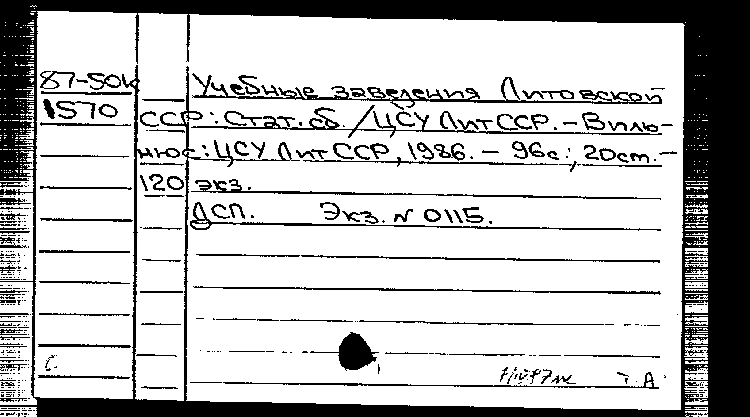 87-50к Учебные заведения Литовской
1570 ССР: Стат. сб. / ЦСУ ЛитССР. – Вилю-
нюс: ЦСУ ЛитССР, 1986. – 96с.; 20 ст. –
120 экз.
ДСП. Экз. N 0115.
С.
Т. А